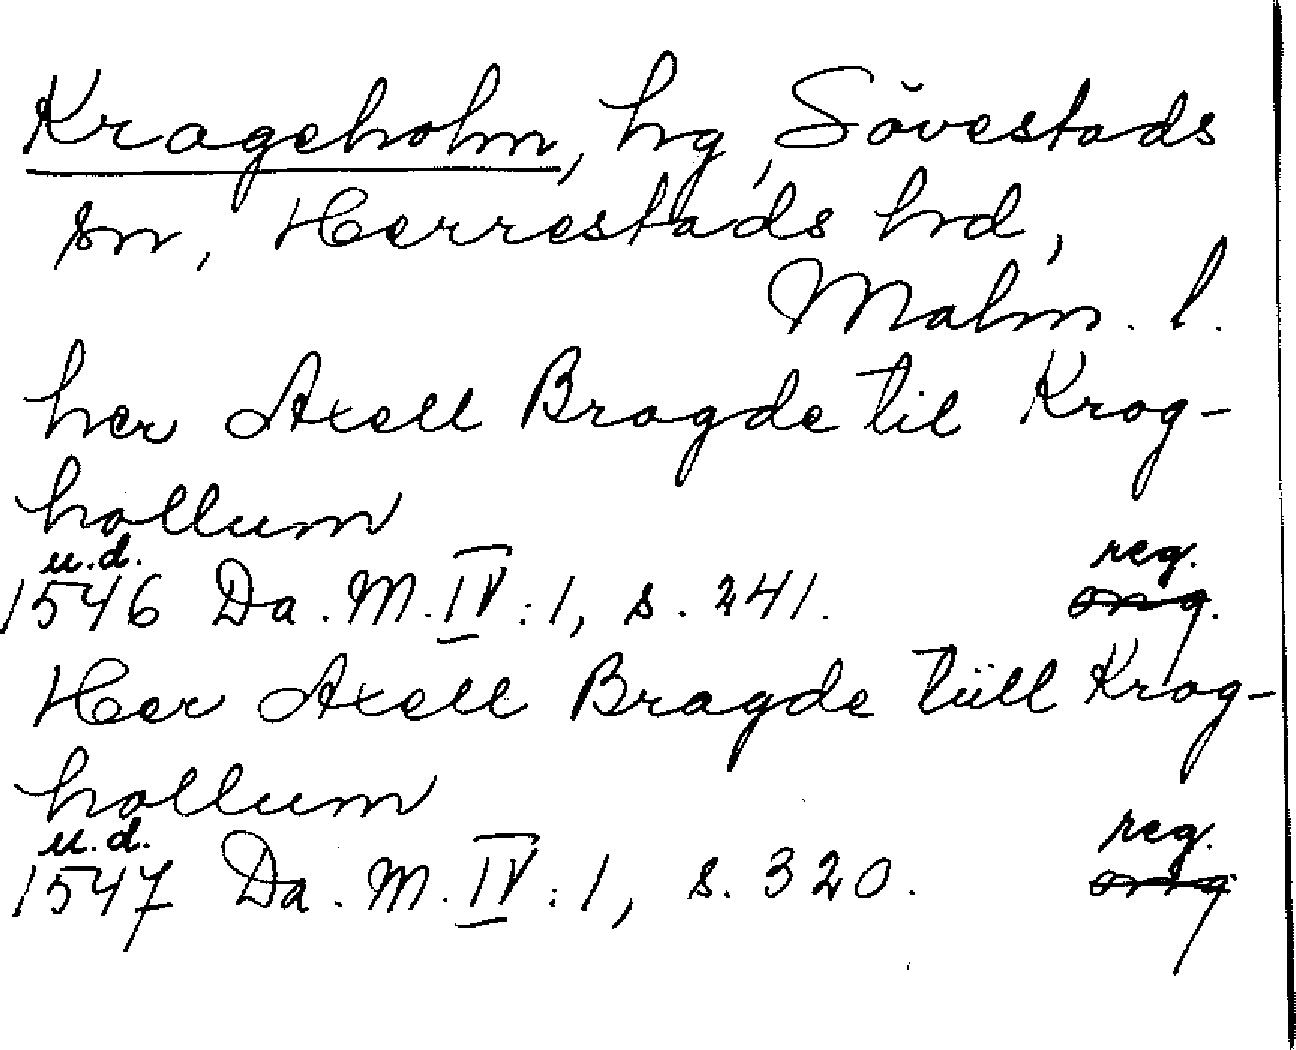 Krageholm, hg, Sövestads
sn, Herrestads hrd,
Malm. l.
her Axell Bragde til Krog-
hollum
u.d. reg.
1546 Da. M. IV:1, s. 241. orig.
Her Axell Bragde tüll Krag-
hollum
u.d. reg.
1547 Da. M. IV:1, s. 320. orig